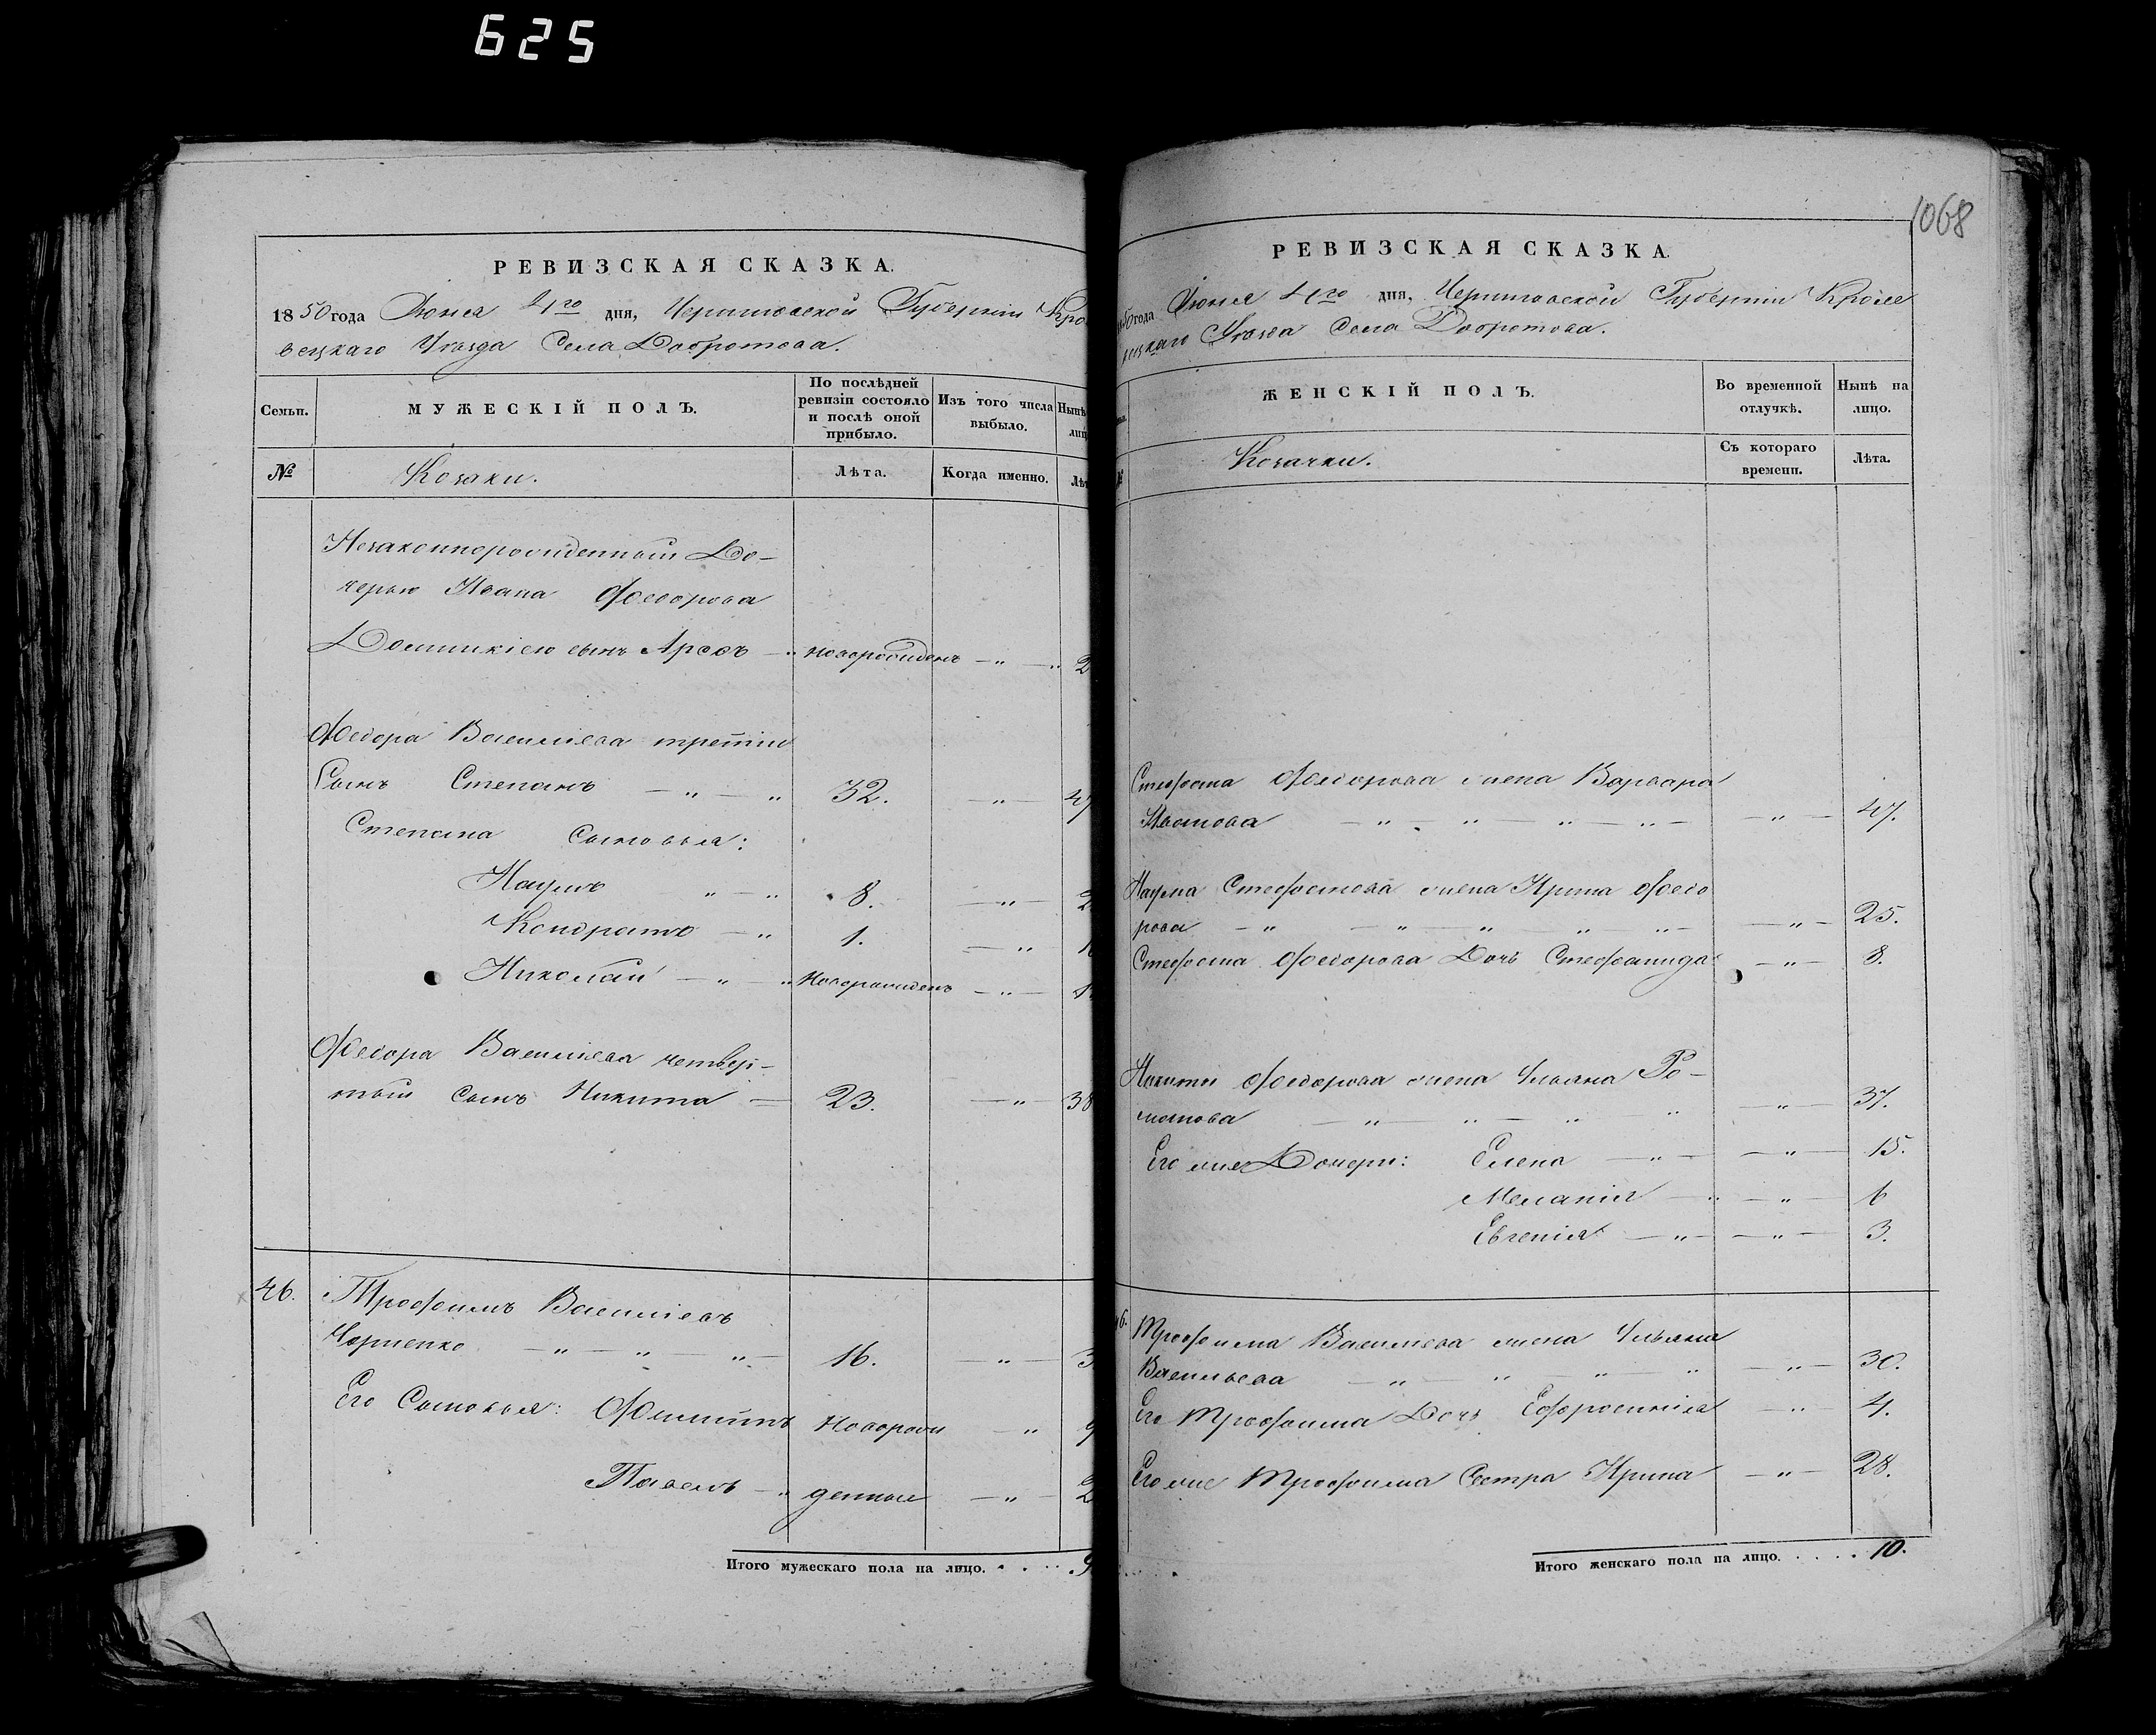 625
РЕВИЗСКАЯ СКАЗКА.
1850 года Июня 4го дня, Черниговской Губерніи Кро
вецкаго Уѣзда Села Добротова.
Семьи.
МУЖЕСКІЙ ПОЛЪ.
По послѣдней ревизіи состояло и послѣ оной прибыло.
Изъ того числа выбыло.
Нынѣ
лиц
№
Козаки.
Лѣта.
Когда именно.
Лѣт
Незаконнорожденный До-
черью Ивана Федорова
Домникіею сынъ Арсс новорожденъ 2
Федора Васильева третій
Сынъ Степанъ 32. 47
Степана Сыновья:
Наумъ 8. 2
Кондратъ 1. 1
Николай Новорожденъ 1
Федора Васильева четвер-
тый Сынъ Никита 23. 38
46. Трофимъ Васильевъ
Чорненко 16. 3
Его Сыновья: Филиппъ Новорож 9
Павелъ денные 2
Итого мужескаго пола на лицо. 9
1068
РЕВИЗСКАЯ СКАЗКА.
1850 года Июня 4го дня, Черниговской Губерніи Кроле
вецкаго Уѣзда Села Добротова.
ЖЕНСКІЙ ПОЛЪ.
Во временной отлучкѣ.
Нынѣ на лицо.
Козачки.
Съ котораго времени.
Лѣта.
Стефана Федорова жена Варвара
Иванова 47.
Наума Стефанова жена Ирина Федо
рова 25.
Стефана Федорова Дочь Стефанида 8.
Никиты Федорова жена Ульяна Ро-
манова 37.
Его же Дочери: Елена 15.
Меланія 6
Евгенія 3.
46. Трофима Васильева жена Ульяна
Васильева 30.
Его Трофима Дочь Ефросинія 4.
Его же Трофима Сестра Ирина 28.
Итого женскаго пола на лицо. 10.